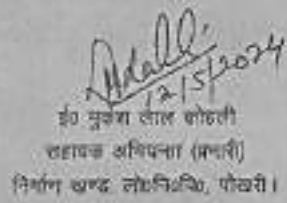 12/5/2024
ई0 मुकेश लाल कोहली
सहायक अभियन्ता (प्रभारी)
निर्माण खण्ड लो0नि0वि0, पोखरी।